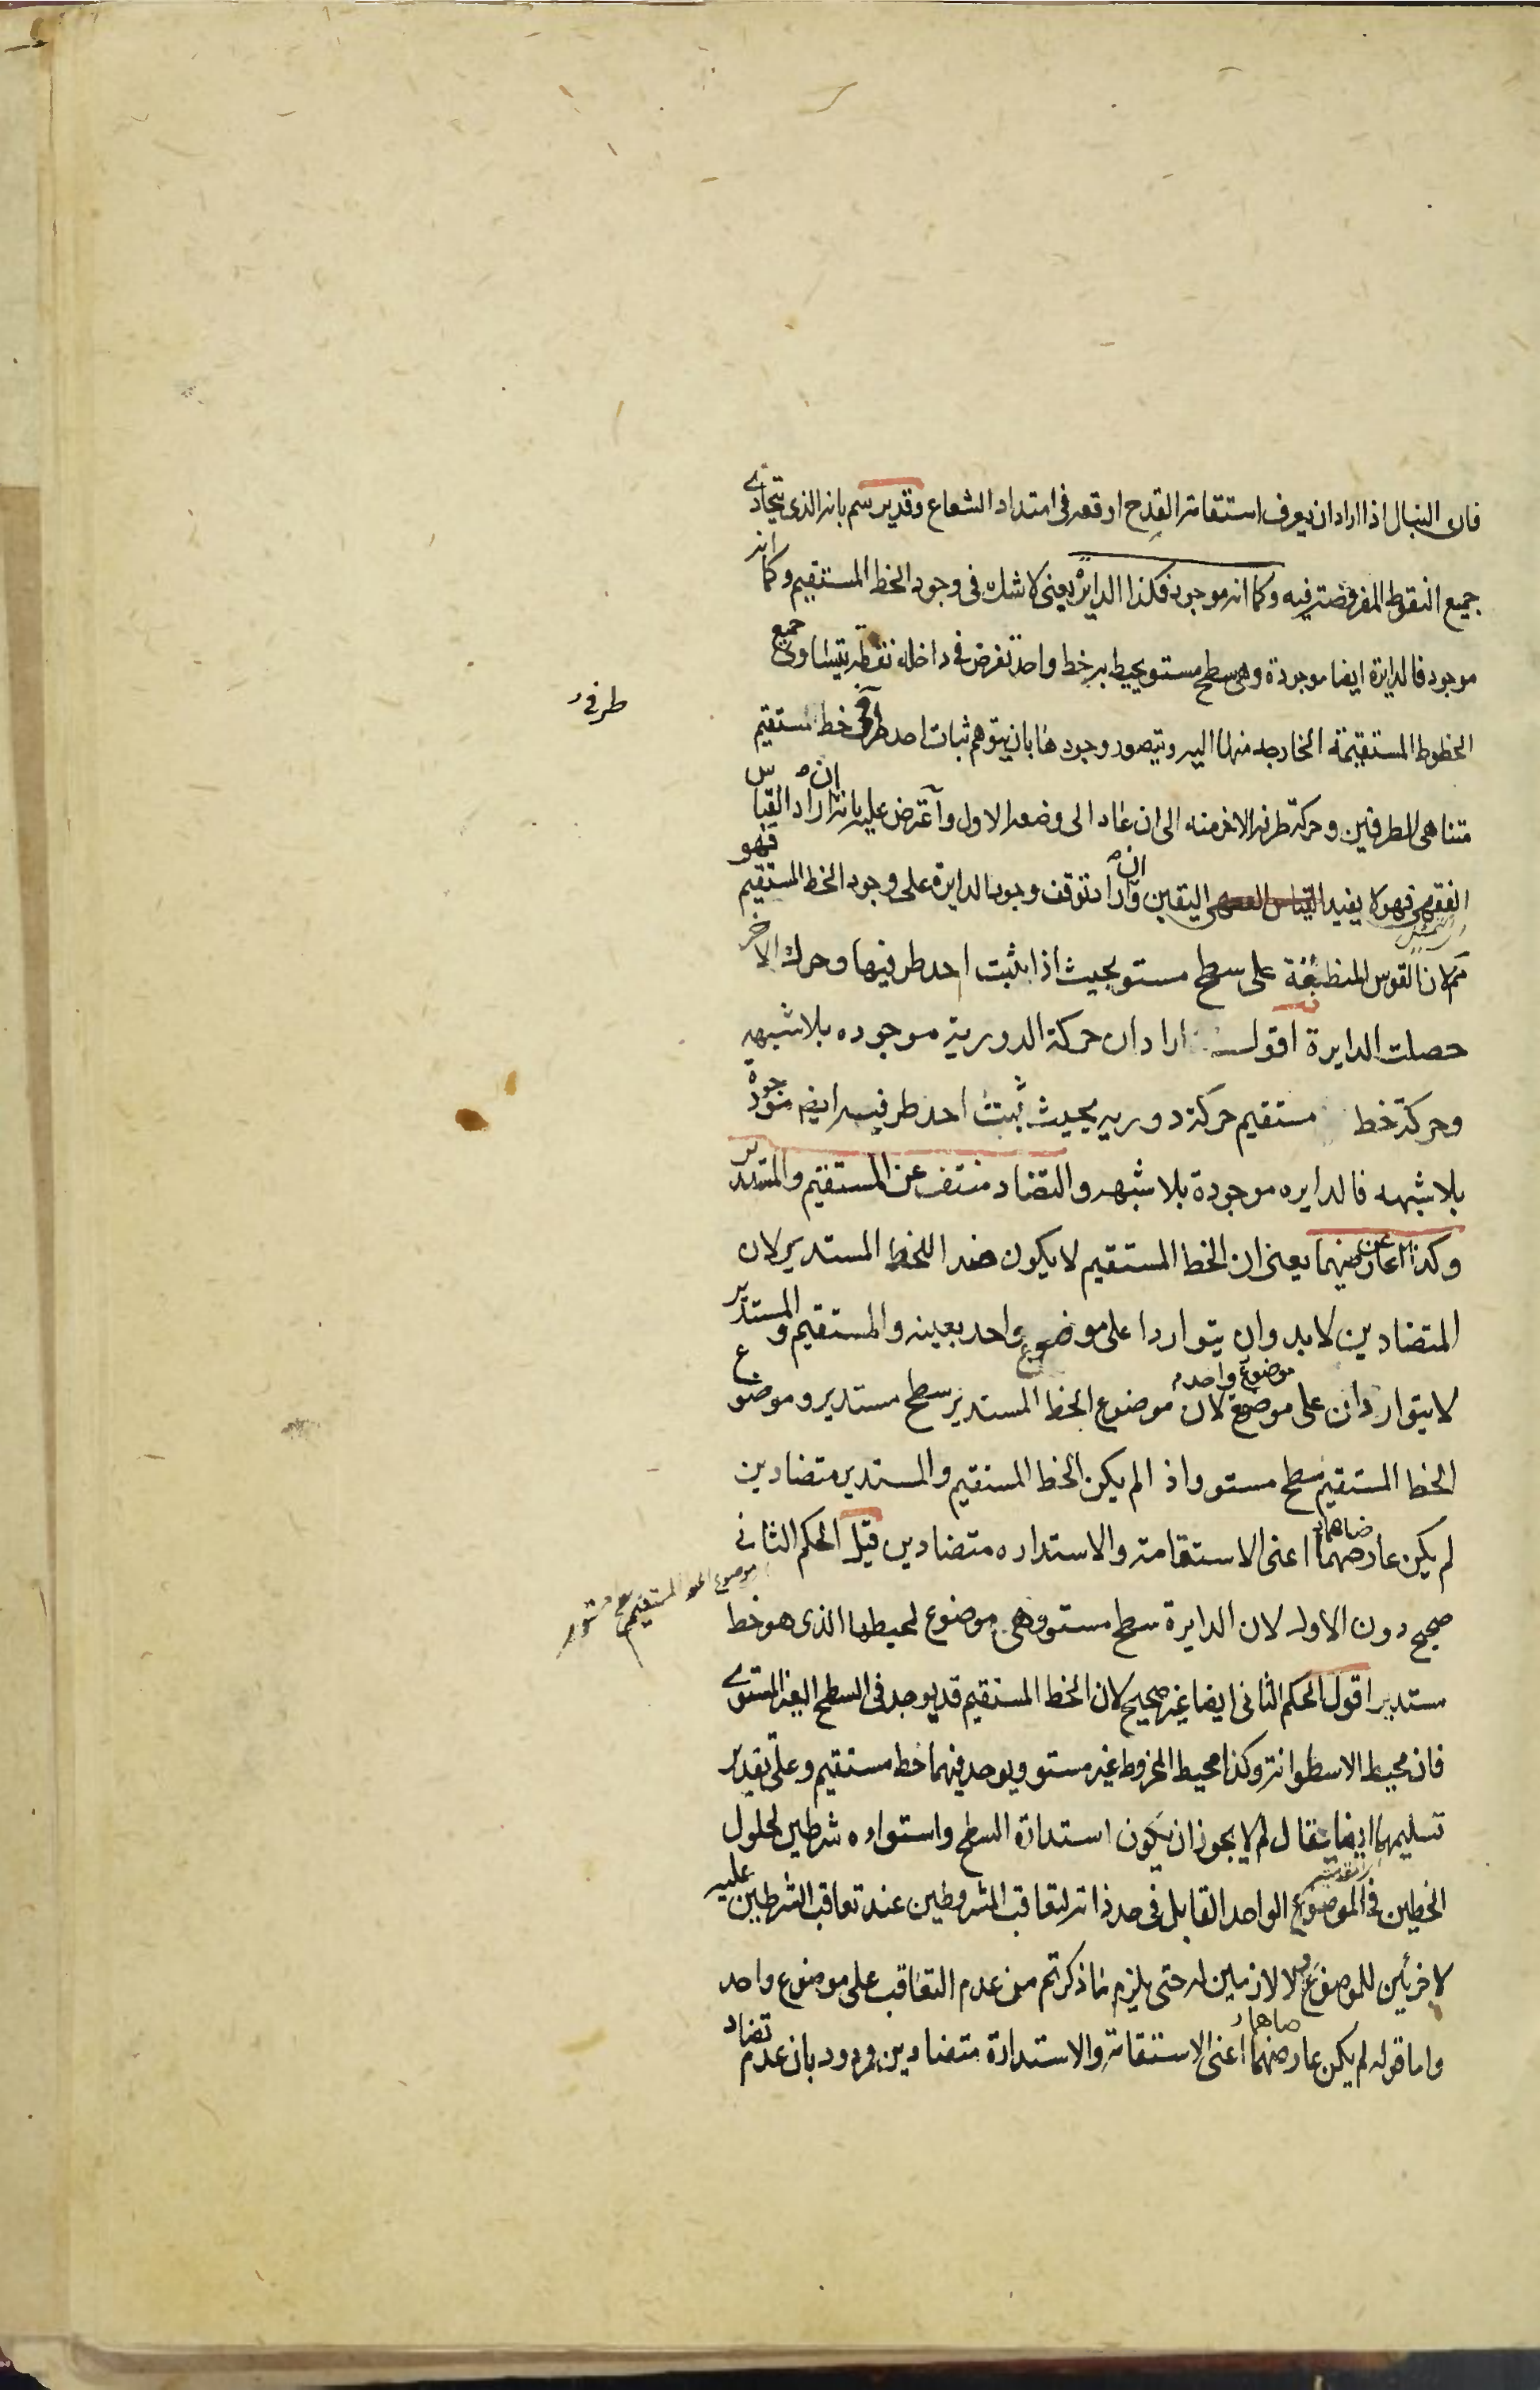 فان النبال اذا اراد ان يعرف استقامة القدح اوقعه فى امتداد الشعاع وقد يرسم بانه الذى يتحاذى
جميع النقوط المفروضة فيه وكما انه موجود فكذا الدايرة يعنى لا شك فى وجود الخط المستقيم وكما انه
موجود فالدايرة ايضا موجودة وهى سطح مستو يحيط به خط واحد تفرض فى داخله نقطة يتساوى جميع
الخطوط المستقيمة الخارجه منها اليه ويتصور وجودها بان يتوهم ثبات احد طرفى خط مستقيم
طرفى
متناهى الطرفين وحركة طرفه الاخر منه الى ان عاد الى وضعه الاول واعترض عليه بانه ان اراد القياس
الفقهى فهو لا يفيد اليقين وان اراد توقف وجود الدايرة على وجود الخط المستقيم فهو
لان القوس المنطبقة على سطح مستو بحيث اذا يثبت احد طرفيها وحرك الاخر
حصلت الدايرة اقول اراد ان حركة الدورية موجوده بلا شبهه
وحركة خط مستقيم حركة دوريه بحيث ثبت احد طرفيه ايضا موجودة
بلا شبهه فالدايره موجودة بلا شبهه والتضاد منتف عن المستقيم والمستدير
وكذا عن عارضيهما يعنى ان الخط المستقيم لا يكون ضدا للخط المستدير لان
المتضادين لا بد وان يتواردا على موضوع واحد بعينه والمستقيم والمستدير
لا يتواردان على موضوع واحد لان موضوع الخط المستدير سطح مستدير وموضوع
الخط المستقيم سطح مستو واذا لم يكن الخط المستقيم والمستدير متضادين
لم يكن عارضاهما اعنى الاستقامة والاستداره متضادين قيل الحكم الثانى
موضوع الخط المستقيم سطح مستو
صحيح دون الاول لان الدايرة سطح مستو وهى موضوع لمحيطها الذى هو خط
مستدير اقول الحكم الثانى ايضا غير صحيح لان الخط المستقيم قد يوجد فى السطح الغير المستوى
فان محيط الاسطوانة وكذا محيط المخروط غير مستو ويوجد فيهما خط مستقيم وعلى تقدير
تسليمهما ايضا يقال لم لا يجوز ان يكون استدارة السطح واستواوه شرطين لحلول
الخطين فى الموضوع الواحد القابل فى حد ذاته لتعاقب المشروطين عند تعاقب الشرطين عليه
لا جزئين للموضوع ولا لازمين له حتى يلزم ما ذكرتم من عدم التعاقب على موضوع واحد
واما قوله لم يكن عارضاهما اعنى الاستقامة والاستدارة متضادين مردود بان عدم تضاد